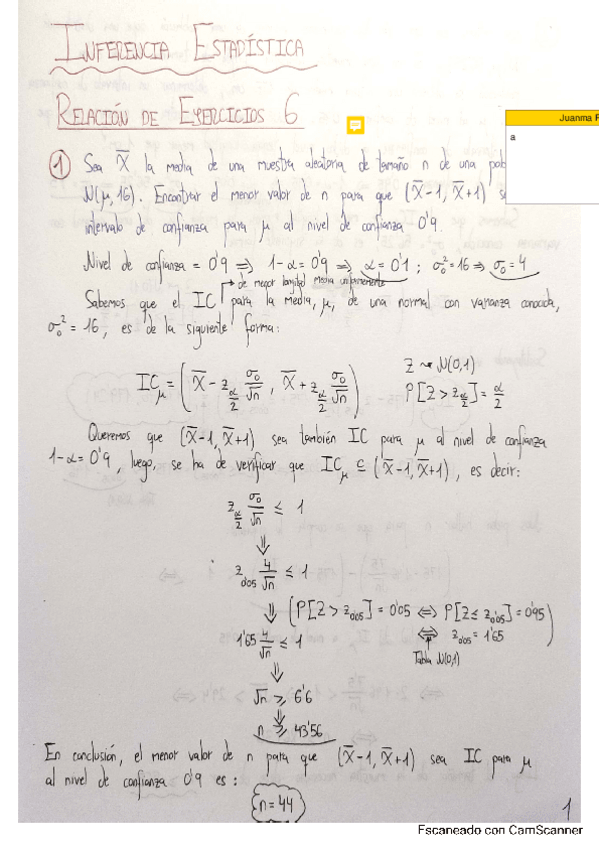 INFERENCIA ESTADÍSTICA
RELACIÓN DE EJERCICIOS 6
Juanma F
a
1 Sea X̅ la media de una muestra aleatoria de tamaño n de una pob
N(μ, 16). Encontrar el menor valor de n para que (X̅-1, X̅+1) s
intervalo de confianza para μ al nivel de confianza 0'9.
Nivel de confianza = 0'9 ⇒ 1-α = 0'9 ⇒ α = 0'1 ; σ₀² = 16 ⇒ σ₀ = 4
→ de menor longitud media uniformemente
Sabemos que el IC para la media, μ, de una normal con varianza conocida,
σ₀² = 16, es de la siguiente forma:
IC_μ = (X̅ - z_{α/2} σ₀/√n , X̅ + z_{α/2} σ₀/√n)
Z ⇝ N(0,1)
P[Z > z_{α/2}] = α/2
Queremos que (X̅-1, X̅+1) sea también IC para μ al nivel de confianza
1-α = 0'9, luego, se ha de verificar que IC_μ ⊆ (X̅-1, X̅+1), es decir:
z_{α/2} σ₀/√n ≤ 1
⇓
z_{0'05} 4/√n ≤ 1
⇓ (P[Z > z_{0'05}] = 0'05 ⇔ P[Z ≤ z_{0'05}] = 0'95)
1'65 4/√n ≤ 1 ⇔ z_{0'05} = 1'65
Tabla N(0,1)
⇓
√n ≥ 6'6
⇓
n ≥ 43'56
En conclusión, el menor valor de n para que (X̅-1, X̅+1) sea IC para μ
al nivel de confianza 0'9 es:
n = 44
1
Escaneado con CamScanner